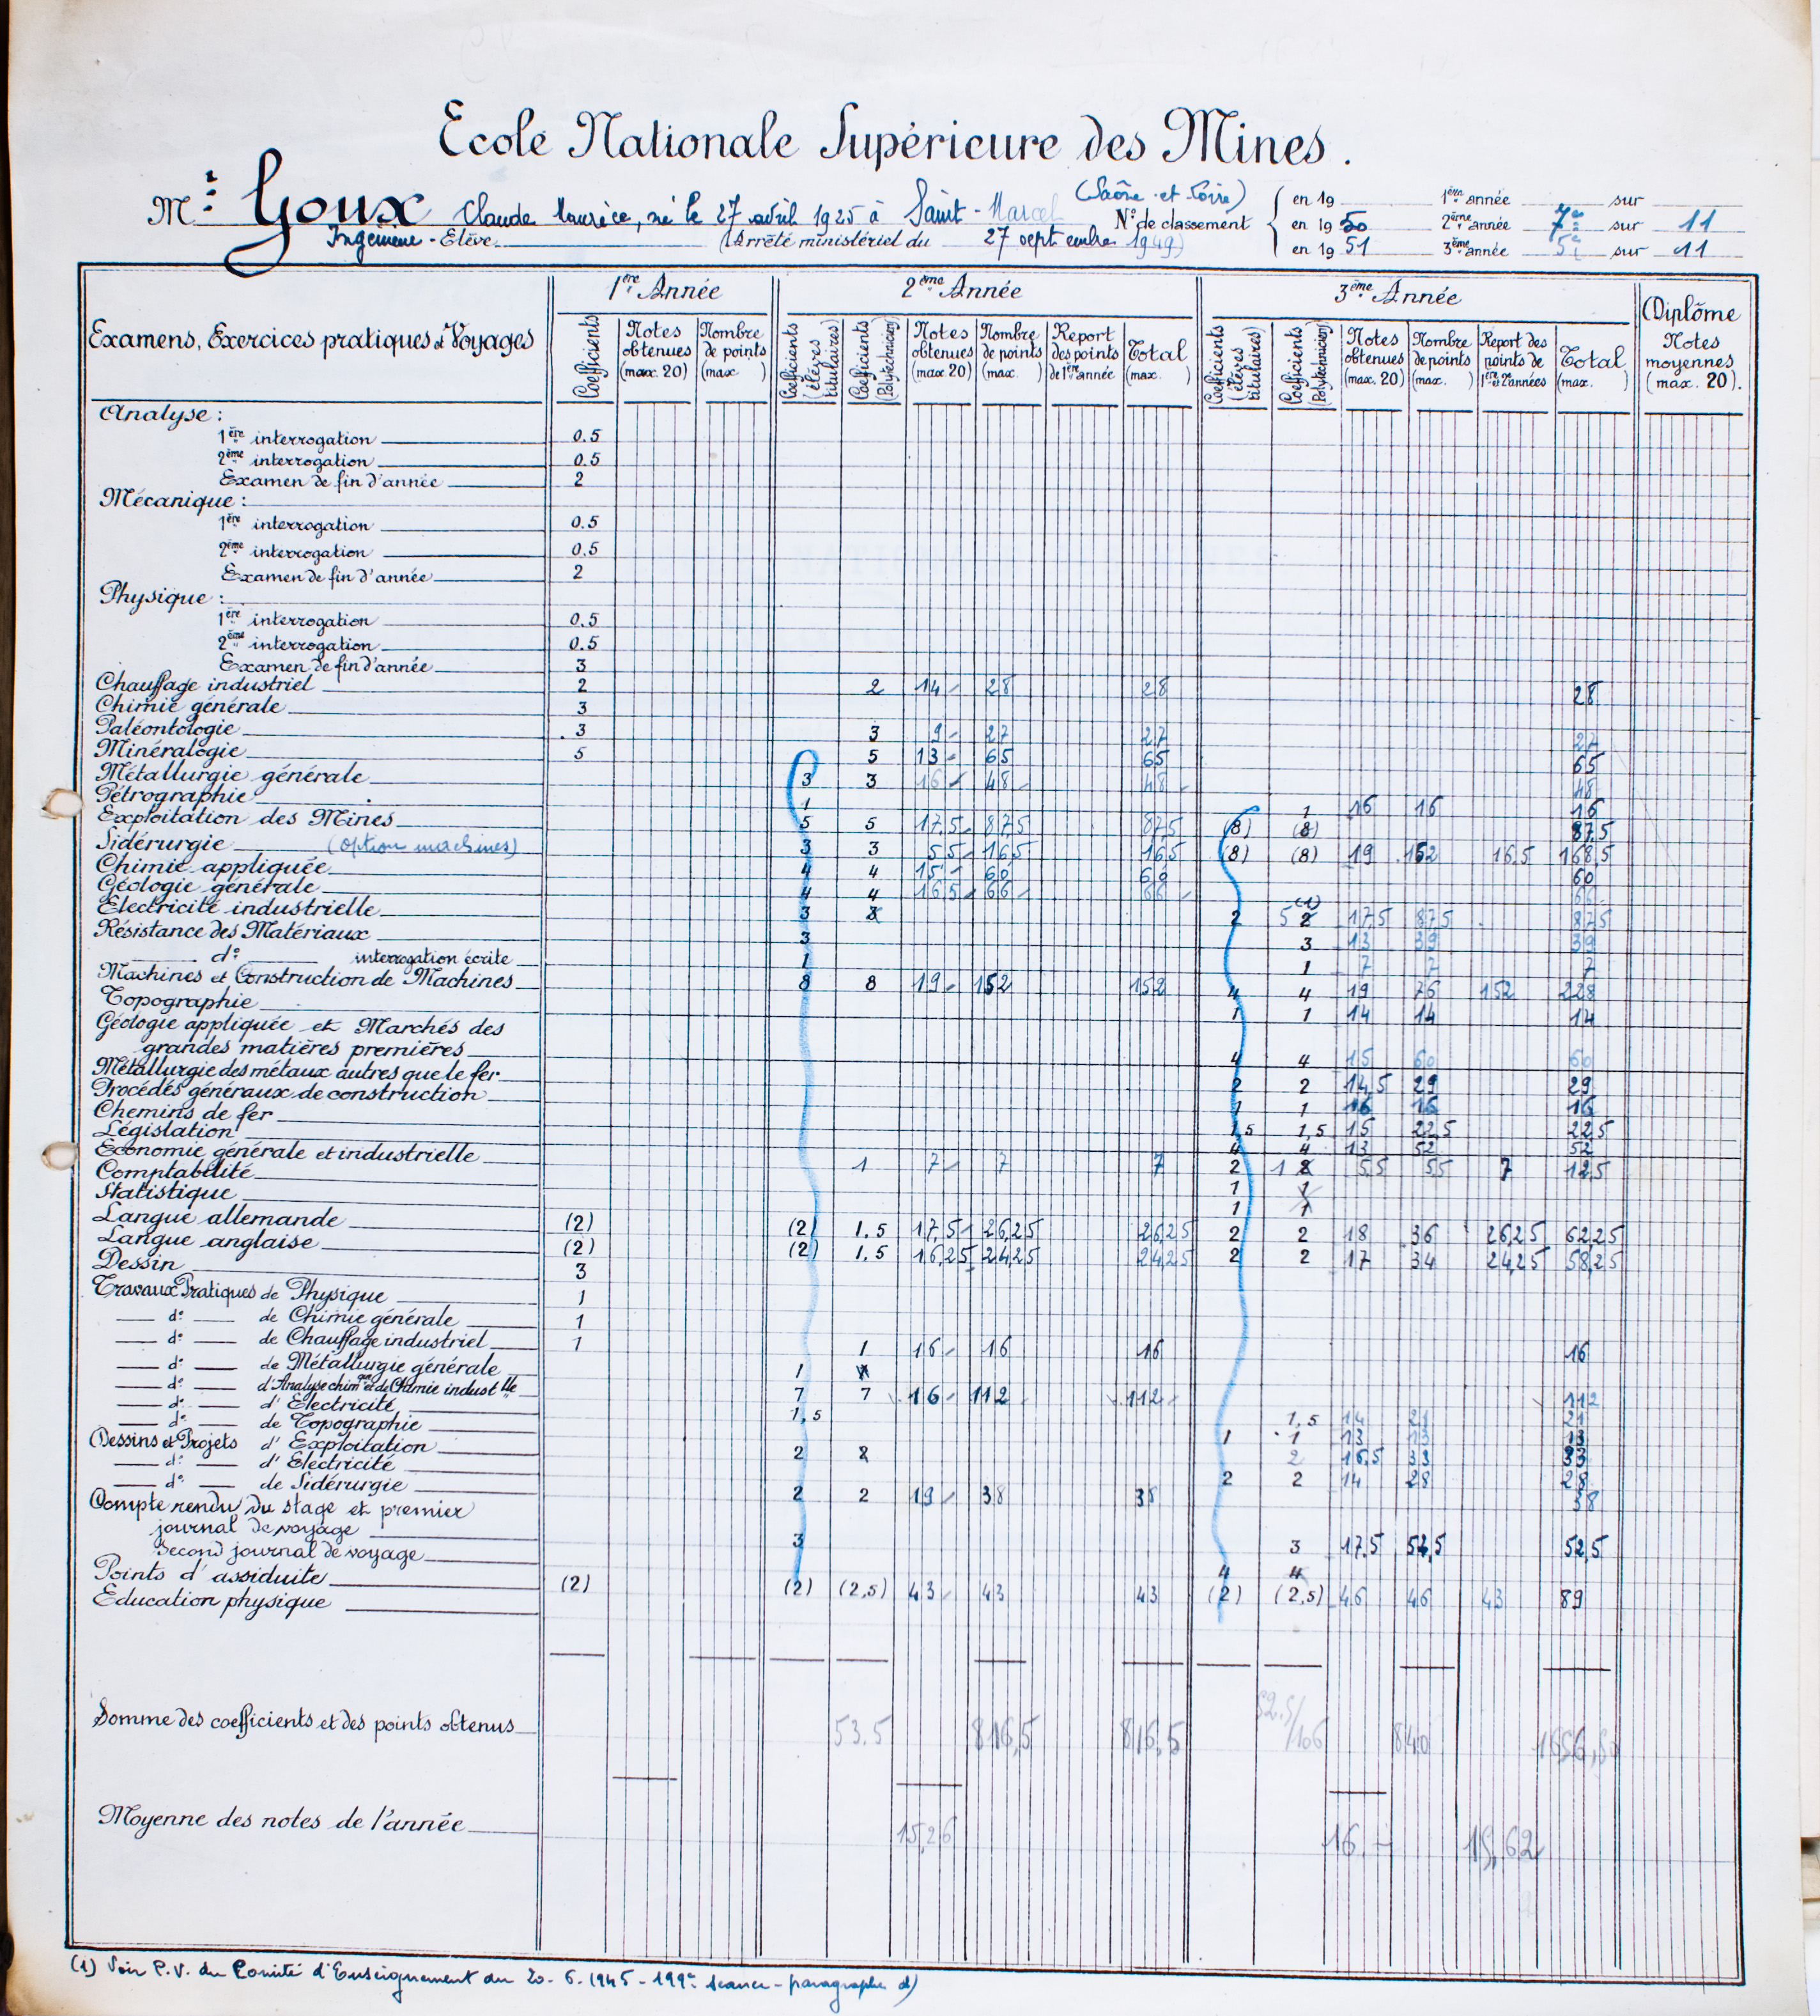 Ecole Nationale Supérieure des Mines.
Mr: Goux Claude Maurice, né le 27 avril 1925 à Saint-Marcel (Saône-et-Loire)
Ingénieur-Elève (Arrêté ministériel du 27 septembre 1949)
N° de classement
en 19 1ère année sur
en 1950 2ème année 7e sur 11
en 1951 3ème année 5e sur 11
Examens, Exercices pratiques et Voyages
1ère Année 2ème Année 3ème Année Diplôme
Coefficients Notes obtenues (max. 20) Nombre de points (max. )
Coefficients (élèves titulaires) Coefficients (Polytechniciens) Notes obtenues (max 20) Nombre de points (max. ) Report des points de 1ère année Total (max. )
Coefficients (élèves titulaires) Coefficients (Polytechniciens) Notes obtenues (max. 20) Nombre de points (max. ) Report des points de 1ère et 2e années Total (max. )
Notes moyennes (max. 20).
Analyse :
1ère interrogation 0.5
2ème interrogation 0.5
Examen de fin d'année 2
Mécanique :
1ère interrogation 0.5
2ème interrogation 0.5
Examen de fin d'année 2
Physique :
1ère interrogation 0.5
2ème interrogation 0.5
Examen de fin d'année 3
Chauffage industriel 2 2 14 28 28 28
Chimie générale 3
Paléontologie 3 3 9 27 27 27
Minéralogie 5 5 13 65 65 65
Métallurgie générale 3 3 16 48 48 48
Pétrographie 1 1 16 16 16
Exploitation des Mines 5 5 17,5 87,5 87,5 (8) (8) 87,5
Sidérurgie (option machines) 3 3 5,5 16,5 16,5 (8) (8) 19 152 16,5 168,5
Chimie appliquée 4 4 15 60 60 60
Géologie générale 4 4 16,5 66 66 66
Electricité industrielle 3 3 2 5 2 (1) 17,5 87,5 87,5
Résistance des Matériaux 3 3 13 39 39
d° interrogation écrite 1 1 7 7 7
Machines et Construction de Machines 8 8 19 152 152 4 4 19 76 152 228
Topographie 1 1 14 14 14
Géologie appliquée et Marchés des
grandes matières premières 4 4 15 60 60
Métallurgie des métaux autres que le fer 2 2 14,5 29 29
Procédés généraux de construction 1 1 16 16 16
Chemins de fer 1,5 1,5 15 22,5 22,5
Législation 4 4 13 52 52
Economie générale et industrielle 1 7 7 7 2 1 2 5,5 5,5 7 12,5
Comptabilité 1 1
Statistique 1 1
Langue allemande (2) (2) 1,5 17,5 26,25 26,25 2 2 18 36 26,25 62,25
Langue anglaise (2) (2) 1,5 16,25 24,25 24,25 2 2 17 34 24,25 58,25
Dessin 3
Travaux Pratiques de Physique 1
d° de Chimie générale 1
d° de Chauffage industriel 1 1 16 16 16 16
d° de Métallurgie générale 1
d° d'Analyse chimque et de Chimie indust lle 7 7 16 112 112 112
d° d'Electricité 1,5 1,5 14 21 21
d° de Topographie 1 1 13 13 13
Dessins et Projets d'Exploitation 2 2 2 16,5 33 33
d° d'Electricité 2 2 14 28 28
d° de Sidérurgie 2 2 19 38 38 38
Compte rendu du stage et premier
journal de voyage 3 3 17,5 52,5 52,5
Second journal de voyage 4 4
Points d'assiduité (2) (2) (2,5) 43 43 43 (2) (2,5) 46 46 43 89
Education physique
Somme des coefficients et des points obtenus 53,5 816,5 816,5 52.5/106 840 1656,50
Moyenne des notes de l'année 15,26 16.- 15,62
(1) Voir P.V. du Comité d'Enseignement du 20-6-1945 - 199e séance - paragraphe d)